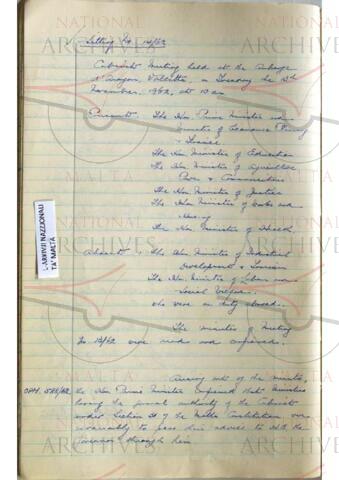 Sitting No 14/62
Cabinet Meeting held at the Auberge
d'Aragon, Valletta, on Tuesday the 13th
November, 1962, at 10 am
Present: The Hon. Prime Minister and
Minister of Economic Planning
& Finance
The Hon Minister of Education
The Hon Minister of Agriculture,
Power & Communications
The Hon Minister of Justice
The Hon Minister of Works and
Housing
The Hon Minister of Health
Absent: The Hon. Minister of Industrial
Development & Tourism
The Hon. Minister of Labour and
Social Welfare.
who were on duty abroad.
The minutes of Meeting
No 13/62 were read and confirmed.
Arising out of the minutes,
OPM. 588/62. the Hon Prime Minister informed that Ministers
having the general authority of the Cabinet
under Section of the Malta Constitution, were
invariably to pass their advice to H.E. the
Governor through him
L-ARKIVJI NAZZJONALI
TA' MALTA
NATIONAL
ARCHIVES